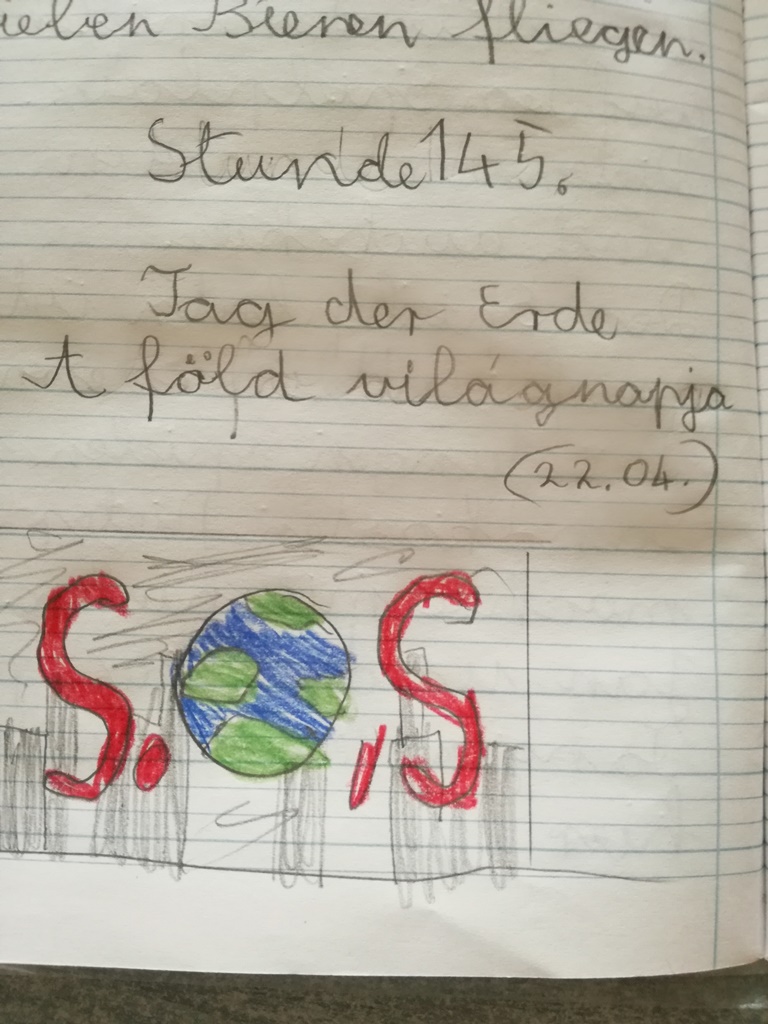 ieben Bienen fliegen.
Stunde 145.
Tag der Erde
A föld világnapja
(22.04.)
S.O.S